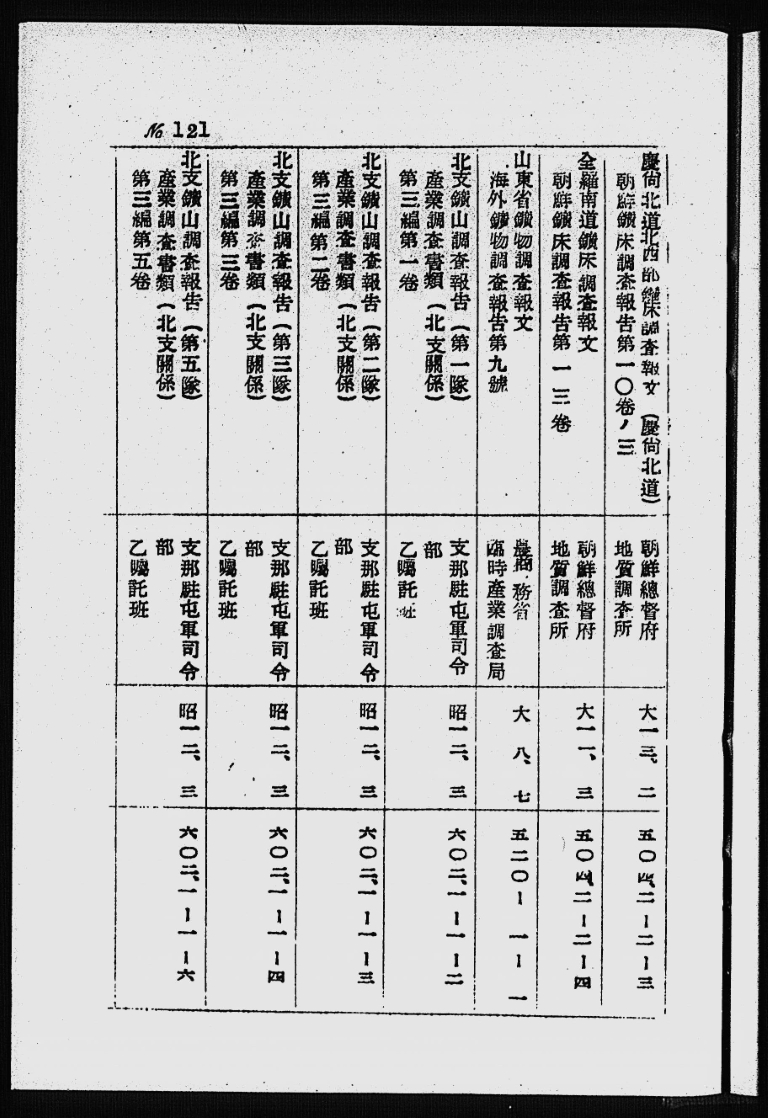 № 121
慶尙北道北西部鑛床調査報文（慶尙北道）
朝鮮鑛床調査報告第一〇卷ノ三
朝鮮總督府
地質調査所
大一三、二
五〇四、二－二－三
全羅南道鑛床調査報文
朝鮮鑛床調査報告第一三卷
朝鮮總督府
地質調査所
大一一、三
五〇四、二－二－四
山東省鑛物調査報文
海外鑛物調査報告第九號
農商務省
臨時產業調査局
大八、七
五二〇－一－一
北支鑛山調査報告（第一隊）
產業調査書類（北支關係）
第三編第一卷
支那駐屯軍司令
部
乙囑託班
昭一二、三
六〇二、一－一－二
北支鑛山調査報告（第二隊）
產業調査書類（北支關係）
第三編第二卷
支那駐屯軍司令
部
乙囑託班
昭一二、三
六〇二、一－一－三
北支鑛山調査報告（第三隊）
產業調査書類（北支關係）
第三編第三卷
支那駐屯軍司令
部
乙囑託班
昭一二、三
六〇二、一－一－四
北支鑛山調査報告（第五隊）
產業調査書類（北支關係）
第三編第五卷
支那駐屯軍司令
部
乙囑託班
昭一二、三
六〇二、一－一－六